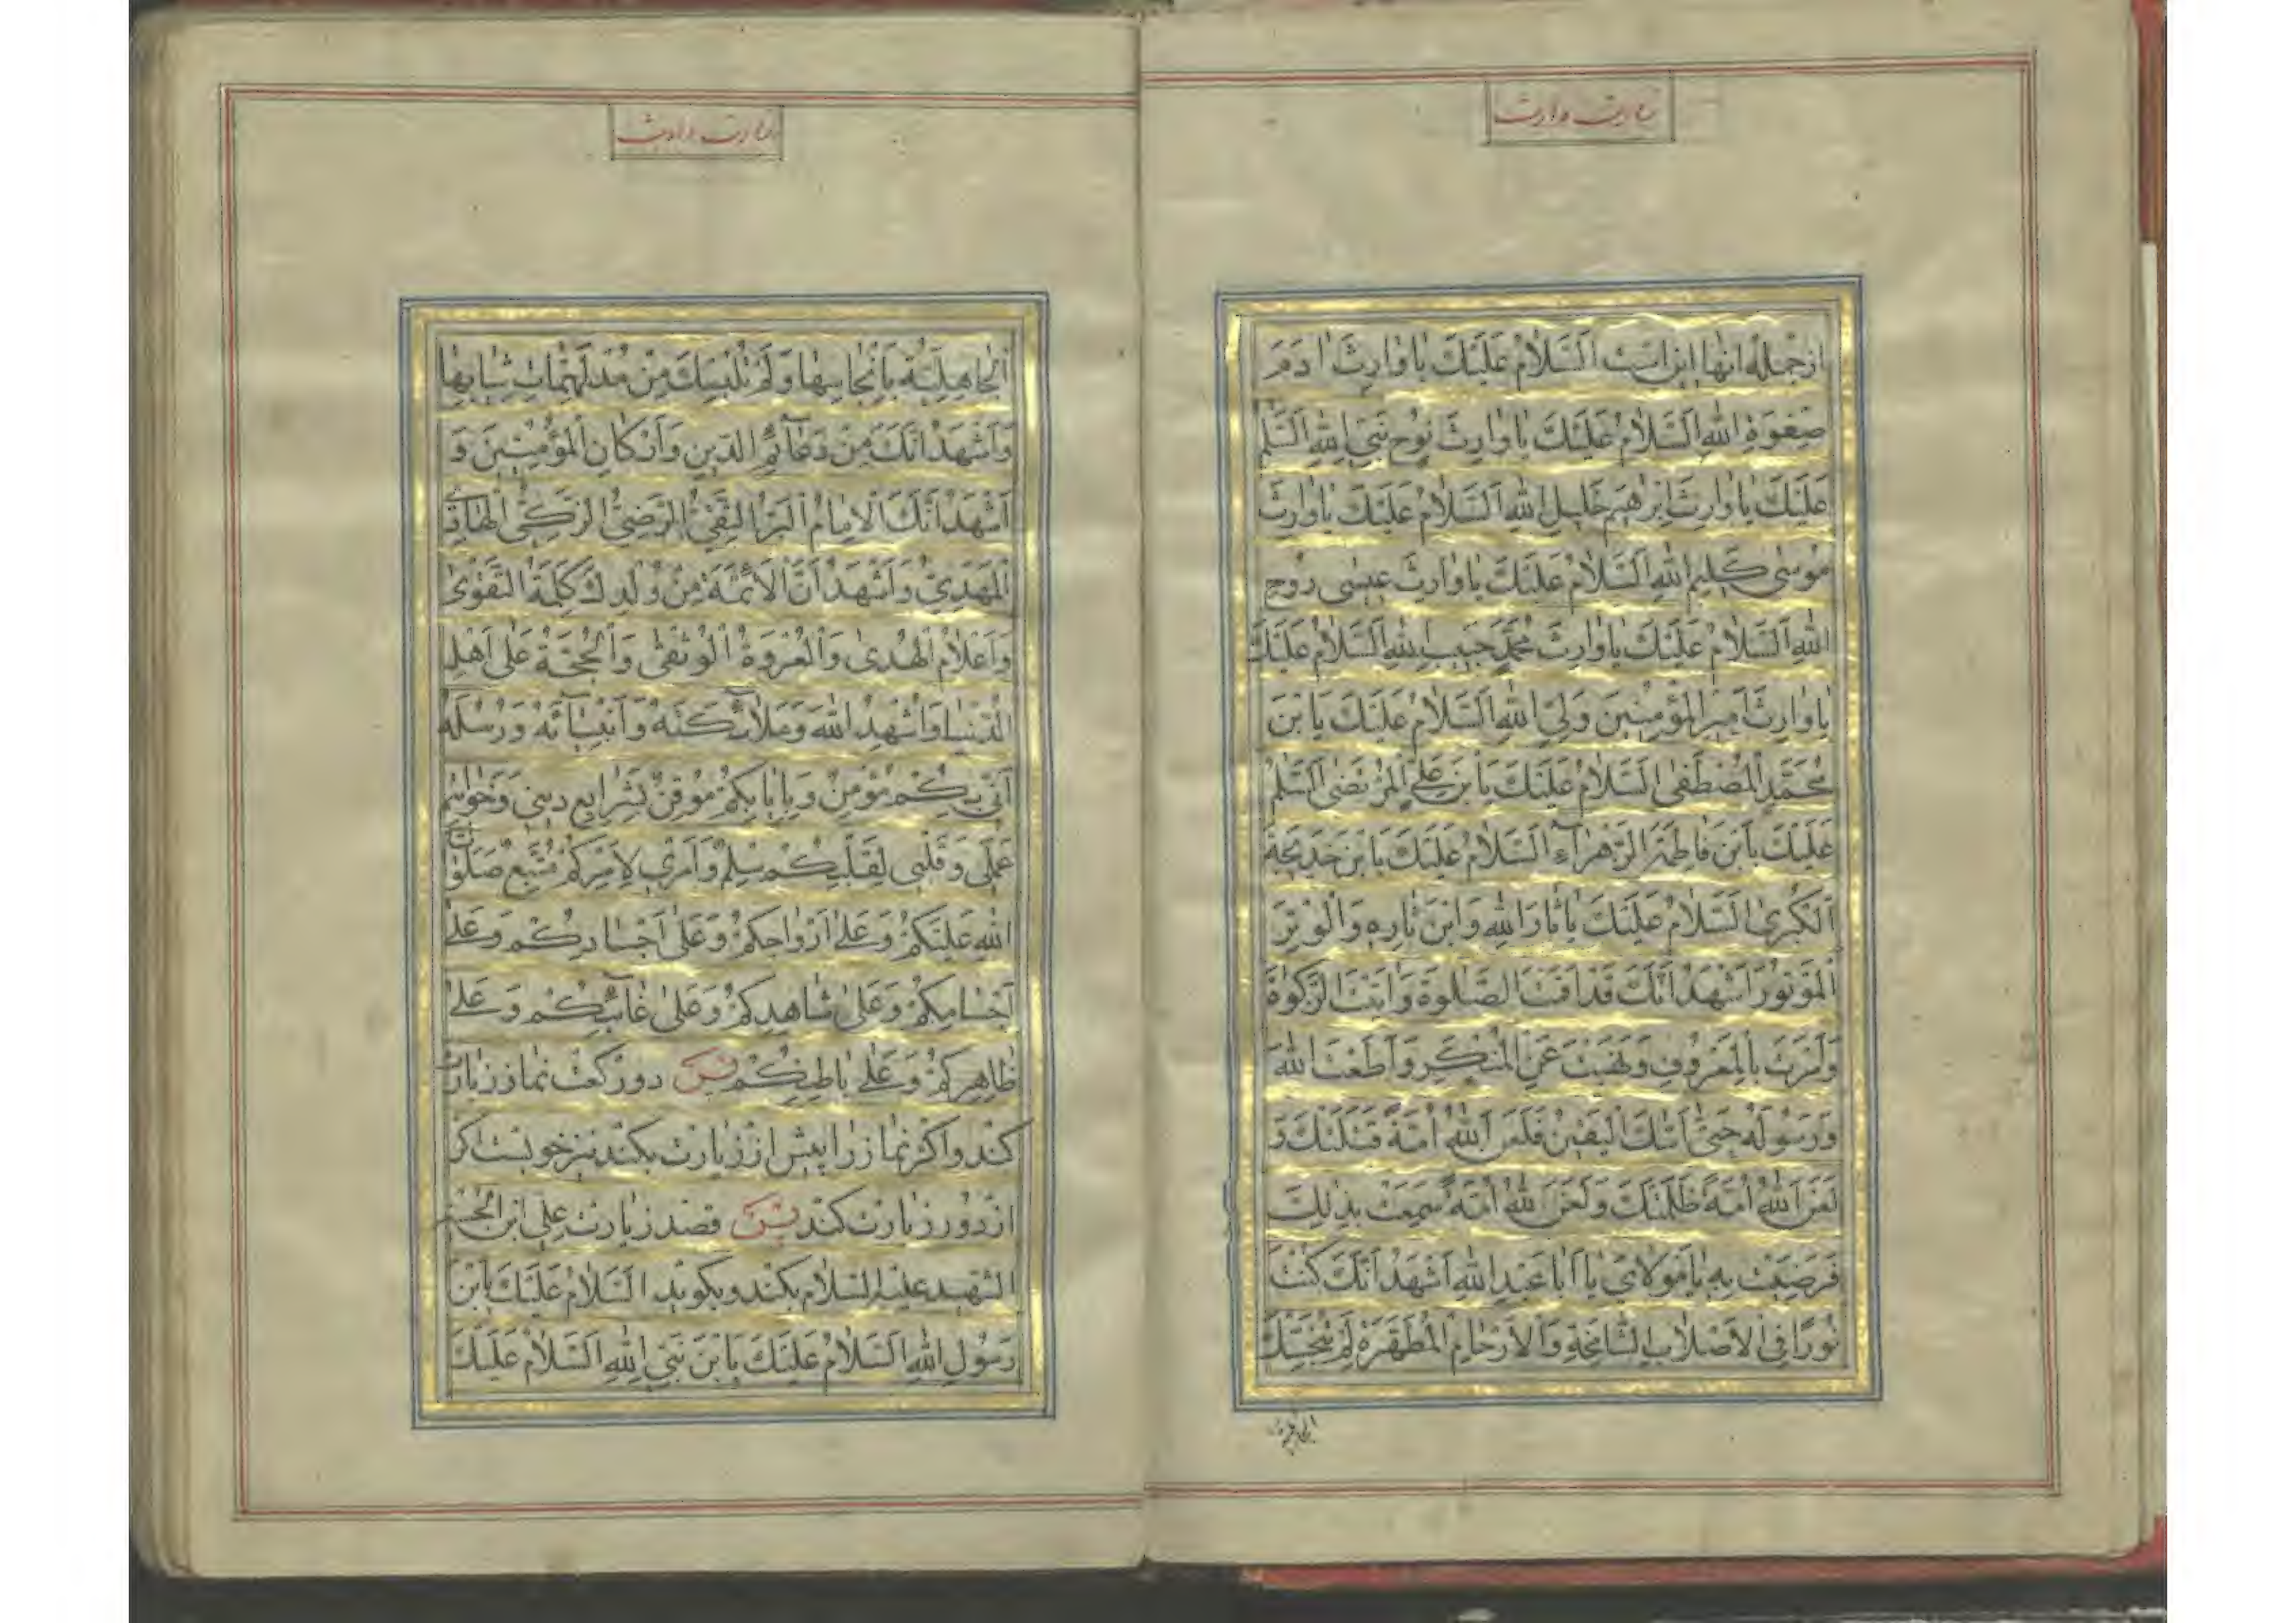 زیارت وارث
ازجمله انها این است اَلسَّلامُ عَلَیْكَ یا وارِثَ ادَمَ
صِفْوَةِ اللهِ اَلسَّلامُ عَلَیْكَ یا وارِثَ نُوحٍ نَبِیِّ اللهِ اَلسَّلٰمُ
عَلَیْكَ یا وارِثَ اِبْرٰهیمَ خَلیلِ اللهِ اَلسَّلامُ عَلَیْكَ یا وارِثَ
مُوسٰی کَلیمِ اللهِ اَلسَّلامُ عَلَیْكَ یا وارِثَ عیسٰی رُوحِ
اللهِ اَلسَّلامُ عَلَیْكَ یا وارِثَ مُحَمَّدٍ حَبیبِ اللهِ اَلسَّلامُ عَلَیْكَ
یا وارِثَ اَمیرِ الْمُؤْمِنینَ وَلِیِّ اللهِ اَلسَّلامُ عَلَیْكَ یَا بْنَ
مُحَمَّدٍ الْمُصْطَفٰی اَلسَّلامُ عَلَیْكَ یَا بْنَ عَلِیٍّ الْمُرْتَضٰی اَلسَّلٰمُ
عَلَیْكَ یَا بْنَ فاطِمَةَ الزَّهْرآءِ اَلسَّلامُ عَلَیْكَ یَا بْنَ خَدیجَةَ
الْکُبْرٰی اَلسَّلامُ عَلَیْكَ یا ثارَ اللهِ وَابْنَ ثارِهِ وَالْوِتْرَ
الْمَوْتُورَ اَشْهَدُ اَنَّكَ قَدْ اَقَمْتَ الصَّلٰوةَ وَاٰتَیْتَ الزَّکٰوةَ
وَاَمَرْتَ بِالْمَعْرُوفِ وَنَهَیْتَ عَنِ الْمُنْکَرِ وَاَطَعْتَ اللهَ
وَرَسُولَهُ حَتّٰی اَتٰیكَ الْیَقینُ فَلَعَنَ اللهُ اُمَّةً قَتَلَتْكَ وَ
لَعَنَ اللهُ اُمَّةً ظَلَمَتْكَ وَلَعَنَ اللهُ اُمَّةً سَمِعَتْ بِذٰلِكَ
فَرَضِیَتْ بِهِ یا مَوْلایَ یا اَبا عَبْدِ اللهِ اَشْهَدُ اَنَّكَ کُنْتَ
نُورًا فِی الْاَصْلابِ الشّامِخَةِ وَالْاَرْحامِ الْمُطَهَّرَةِ لَمْ تُنَجِّسْكَ
الجاهلیة
زیارت وارث
الْجاهِلِیَّةُ بِاَنْجاسِها وَلَمْ تُلْبِسْكَ مِنْ مُدْلَهِمّاتِ ثِیابِها
وَاَشْهَدُ اَنَّكَ مِنْ دَعآئِمِ الدّینِ وَاَرْکانِ الْمُؤْمِنینَ وَ
اَشْهَدُ اَنَّكَ الْاِمامُ الْبَرُّ التَّقِیُّ الرَّضِیُّ الزَّکِیُّ الْهادِی
الْمَهْدِیُّ وَاَشْهَدُ اَنَّ الْاَئِمَّةَ مِنْ وُلْدِكَ کَلِمَةُ التَّقْوٰی
وَاَعْلامُ الْهُدٰی وَالْعُرْوَةُ الْوُثْقٰی وَالْحُجَّةُ عَلٰی اَهْلِ
الدُّنْیا وَاُشْهِدُ اللهَ وَمَلآئِکَتَهُ وَاَنْبِیآئَهُ وَرُسُلَهُ
اَنّی بِکُمْ مُؤْمِنٌ وَبِاِیابِکُمْ مُوقِنٌ بِشَرایِعِ دینی وَخَواتیمِ
عَمَلی وَقَلْبی لِقَلْبِکُمْ سِلْمٌ وَاَمْری لِاَمْرِکُمْ مُتَّبِعٌ صَلَواتُ
اللهِ عَلَیْکُمْ وَعَلٰی اَرْواحِکُمْ وَعَلٰی اَجْسادِکُمْ وَعَلٰی
اَجْسامِکُمْ وَعَلٰی شاهِدِکُمْ وَعَلٰی غآئِبِکُمْ وَعَلٰی
ظاهِرِکُمْ وَعَلٰی باطِنِکُمْ پس دورکعت نماز زیارت
کند واکر نماز را پیش از زیارت بکند نیز خوبست اکر
از دور زیارت کند پس قصد زیارت علی ابن الحسین
الشهید علیه السلام بکند وبکوید اَلسَّلامُ عَلَیْكَ یَا بْنَ
رَسُولِ اللهِ اَلسَّلامُ عَلَیْكَ یَا بْنَ نَبِیِّ اللهِ اَلسَّلامُ عَلَیْكَ